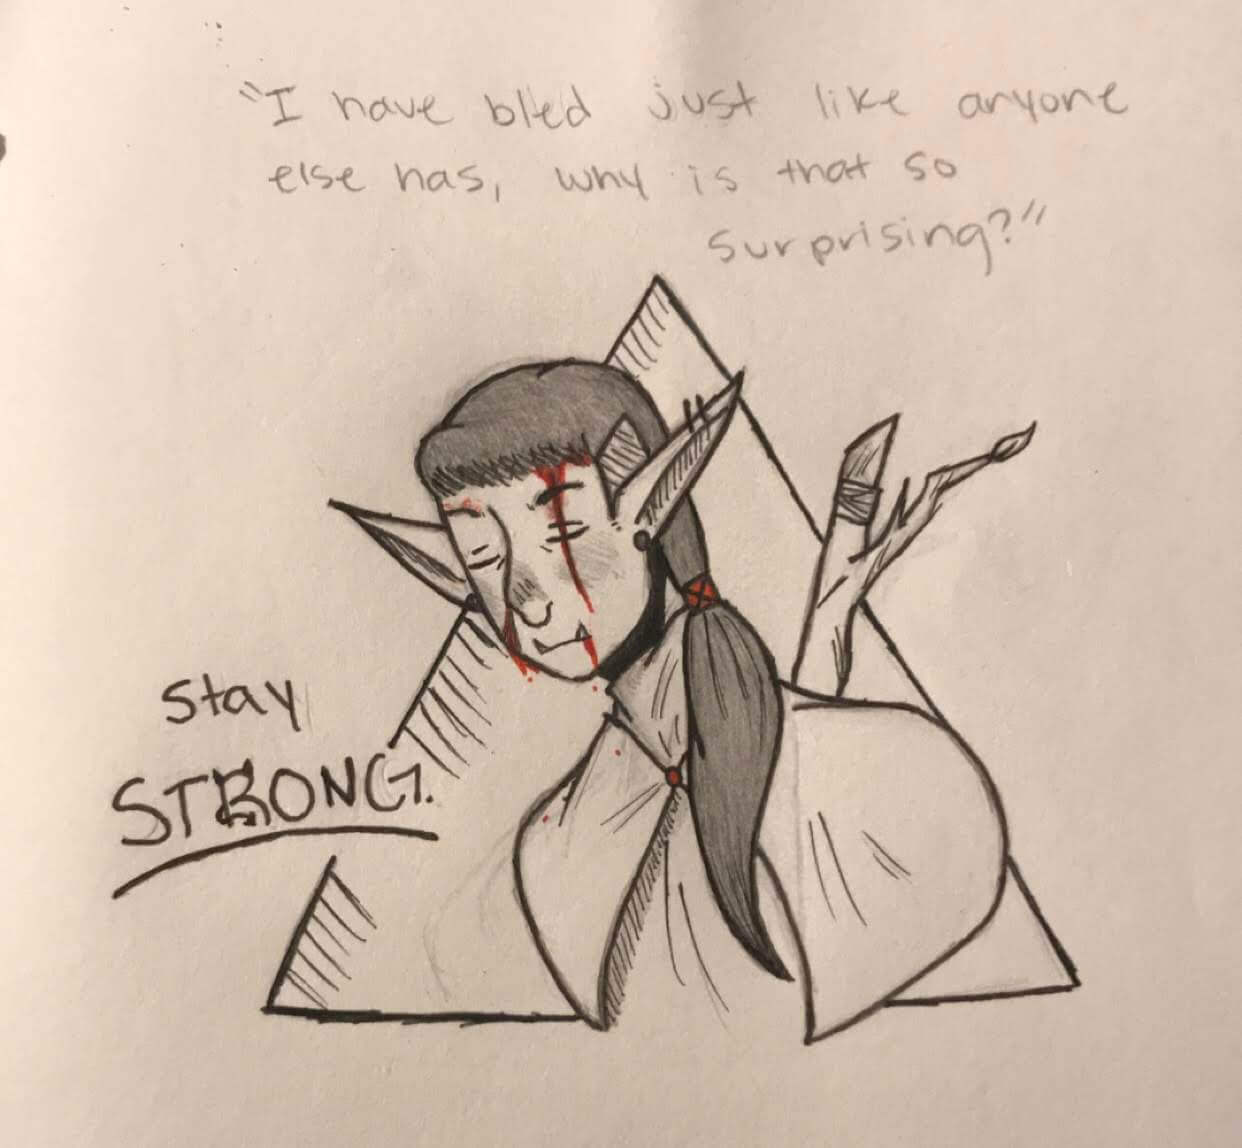 "I have bled just like anyone
else has, why is that so
surprising?"
stay
STRONG.